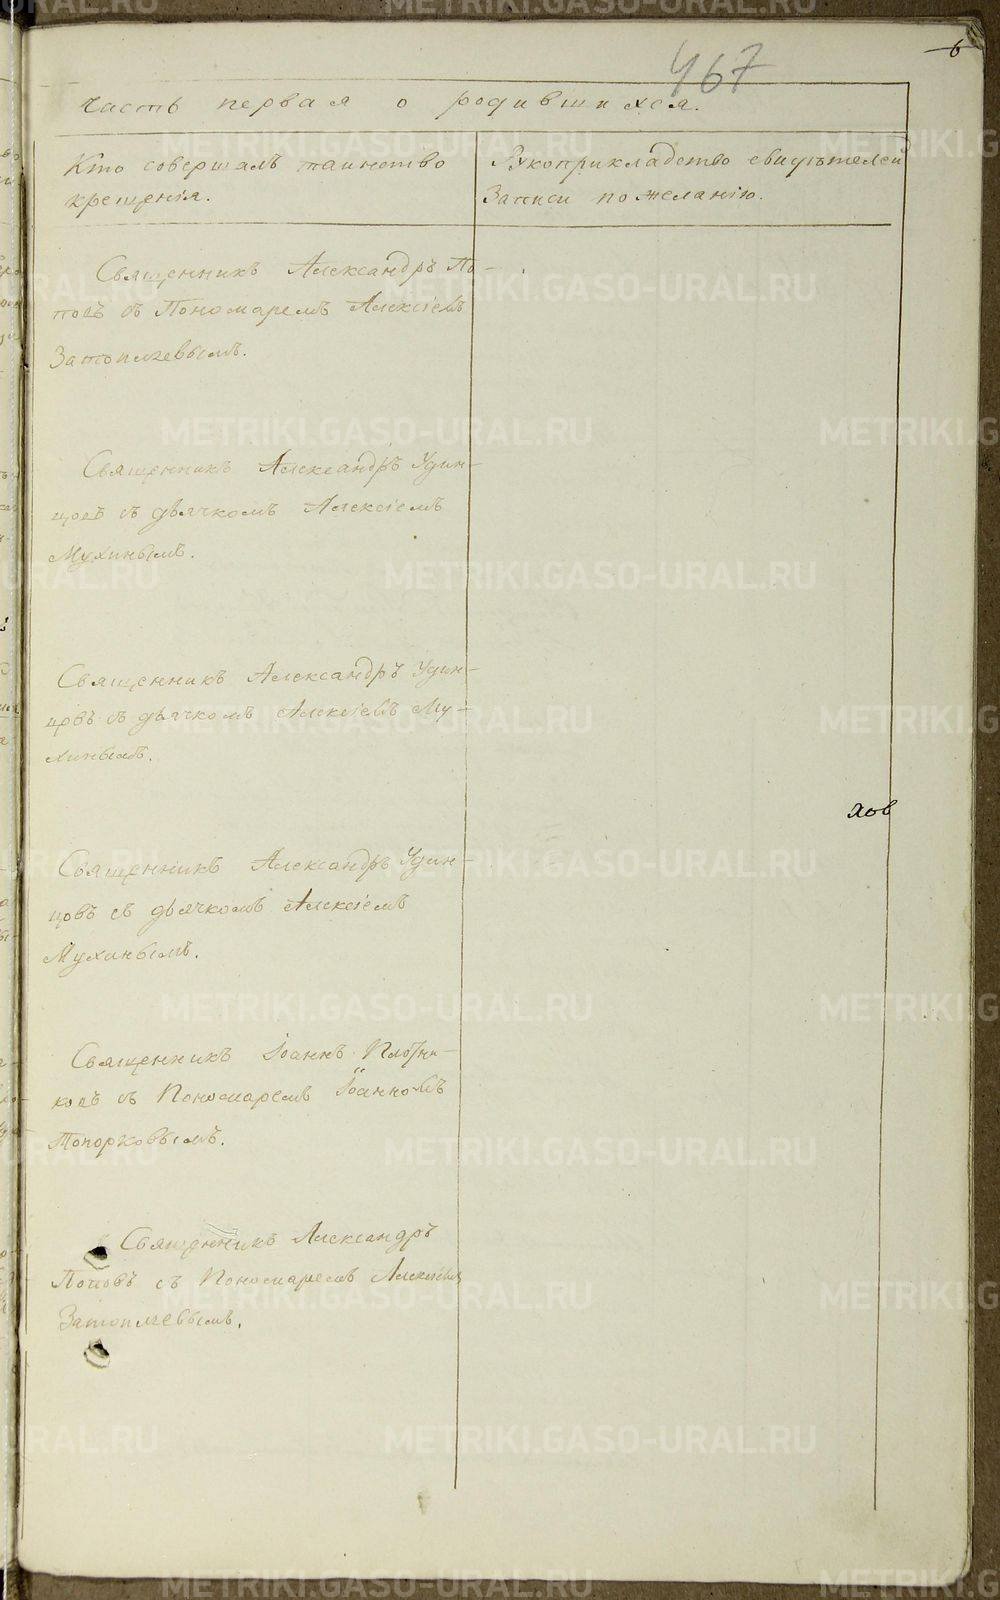 6
467
Часть первая о родившихся.
Кто совершалъ таинство
крещенія.
Рукоприкладство свидѣтелей
записи по желанію.
Священникъ Александръ По-
повъ съ Пономаремъ Алексіемъ
Затопляевымъ.
Священникъ Александръ Удин-
цовъ съ дьячкомъ Алексіемъ
Мухинымъ.
Священникъ Александръ Удин-
цовъ съ дьячкомъ Алексіемъ Му-
хинымъ.
хов
Священникъ Александръ Удин-
цовъ съ дьячкомъ Алексіемъ
Мухинымъ.
Священникъ Іоаннъ Плотни-
ковъ съ Пономаремъ Іоанномъ
Топорковымъ.
Священникъ Александръ
Поповъ съ Пономаремъ Алексіемъ
METRIKI.GASO-URAL.RU